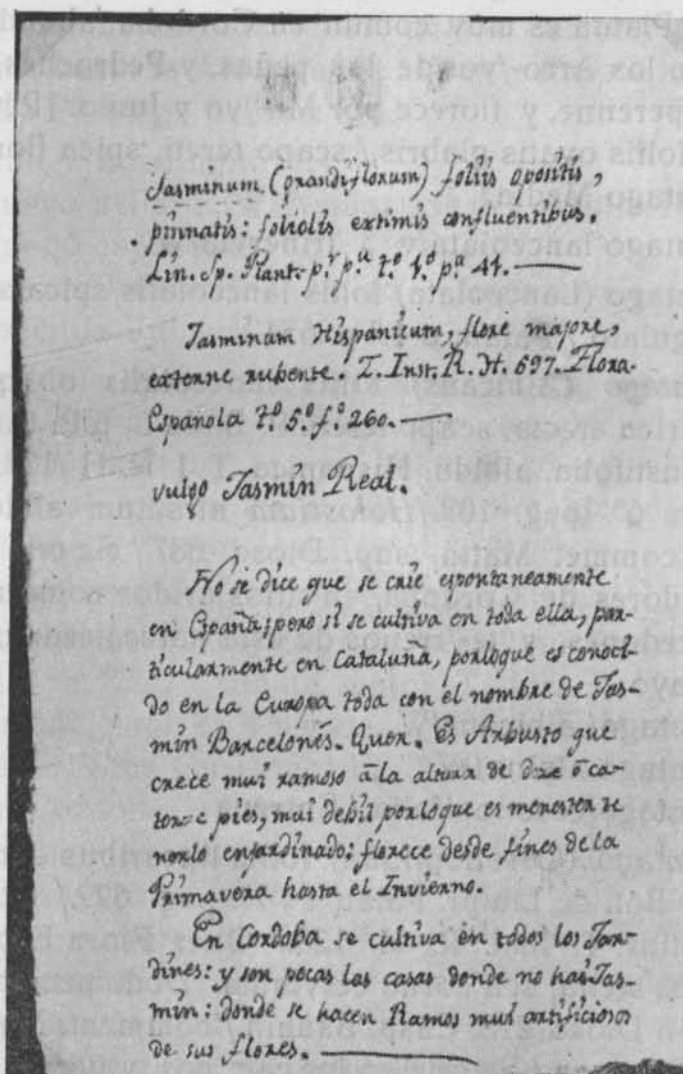 Jasminum (grandiflorum) foliis opositis,
pinnatis: foliolis extimis confluentibus.
Lin. Sp. Plant. p.r p.a t.o 1.o p.a 41.
Jasminum Hispanicum, flore majore,
externe rubente. T. Inst. R. H. 597. Flora
Española t.o 5.o f.o 260.
vulgo Jasmin Real.
No se dice que se crie espontaneamente
en España; pero si se cultiva en toda ella, par-
ticularmente en Cataluña, porloque es conoci-
do en la Europa toda con el nombre de Jas-
min Barcelonés. Quer. Es Arbusto que
crece mui ramoso â la altura de doze ô ca-
torce pies, mui debil porloque es menester te
nerlo enjardinado: florece desde fines de la
Primavera hasta el Invierno.
En Cordoba se cultiva en todos los Jar-
dines: y son pocas las casas donde no hai Jas-
min: donde se hacen Ramos mui artificiosos
de sus flores.